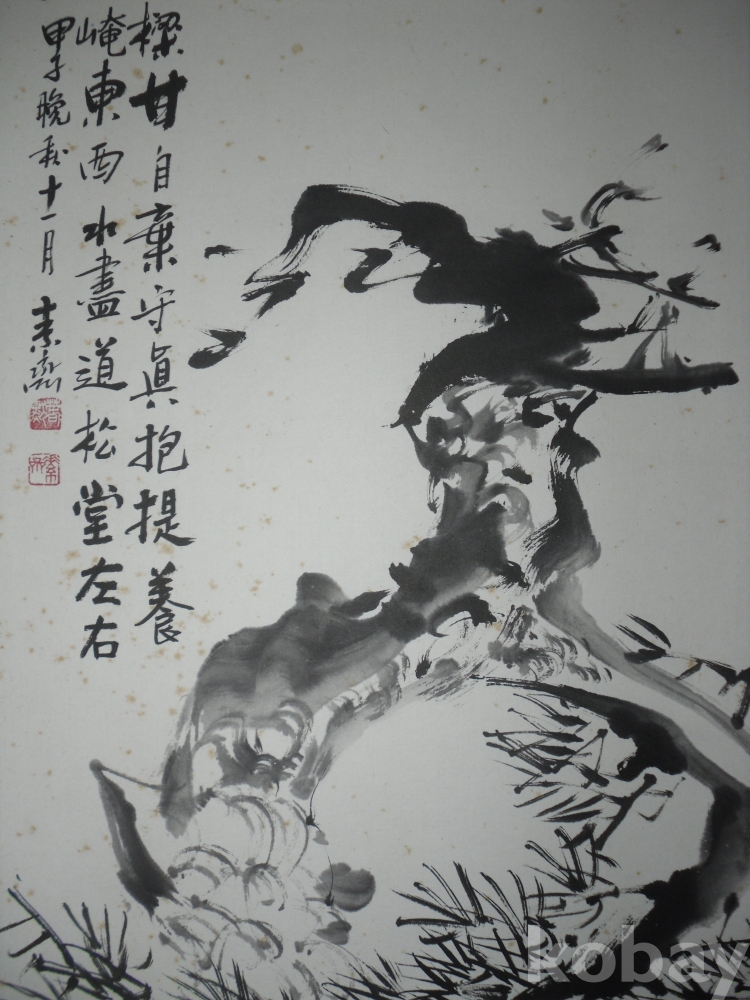 樗甘自棄守眞抱提養
崦東西水盡道松堂左右
甲子晚秋十一月 素齋
kobay